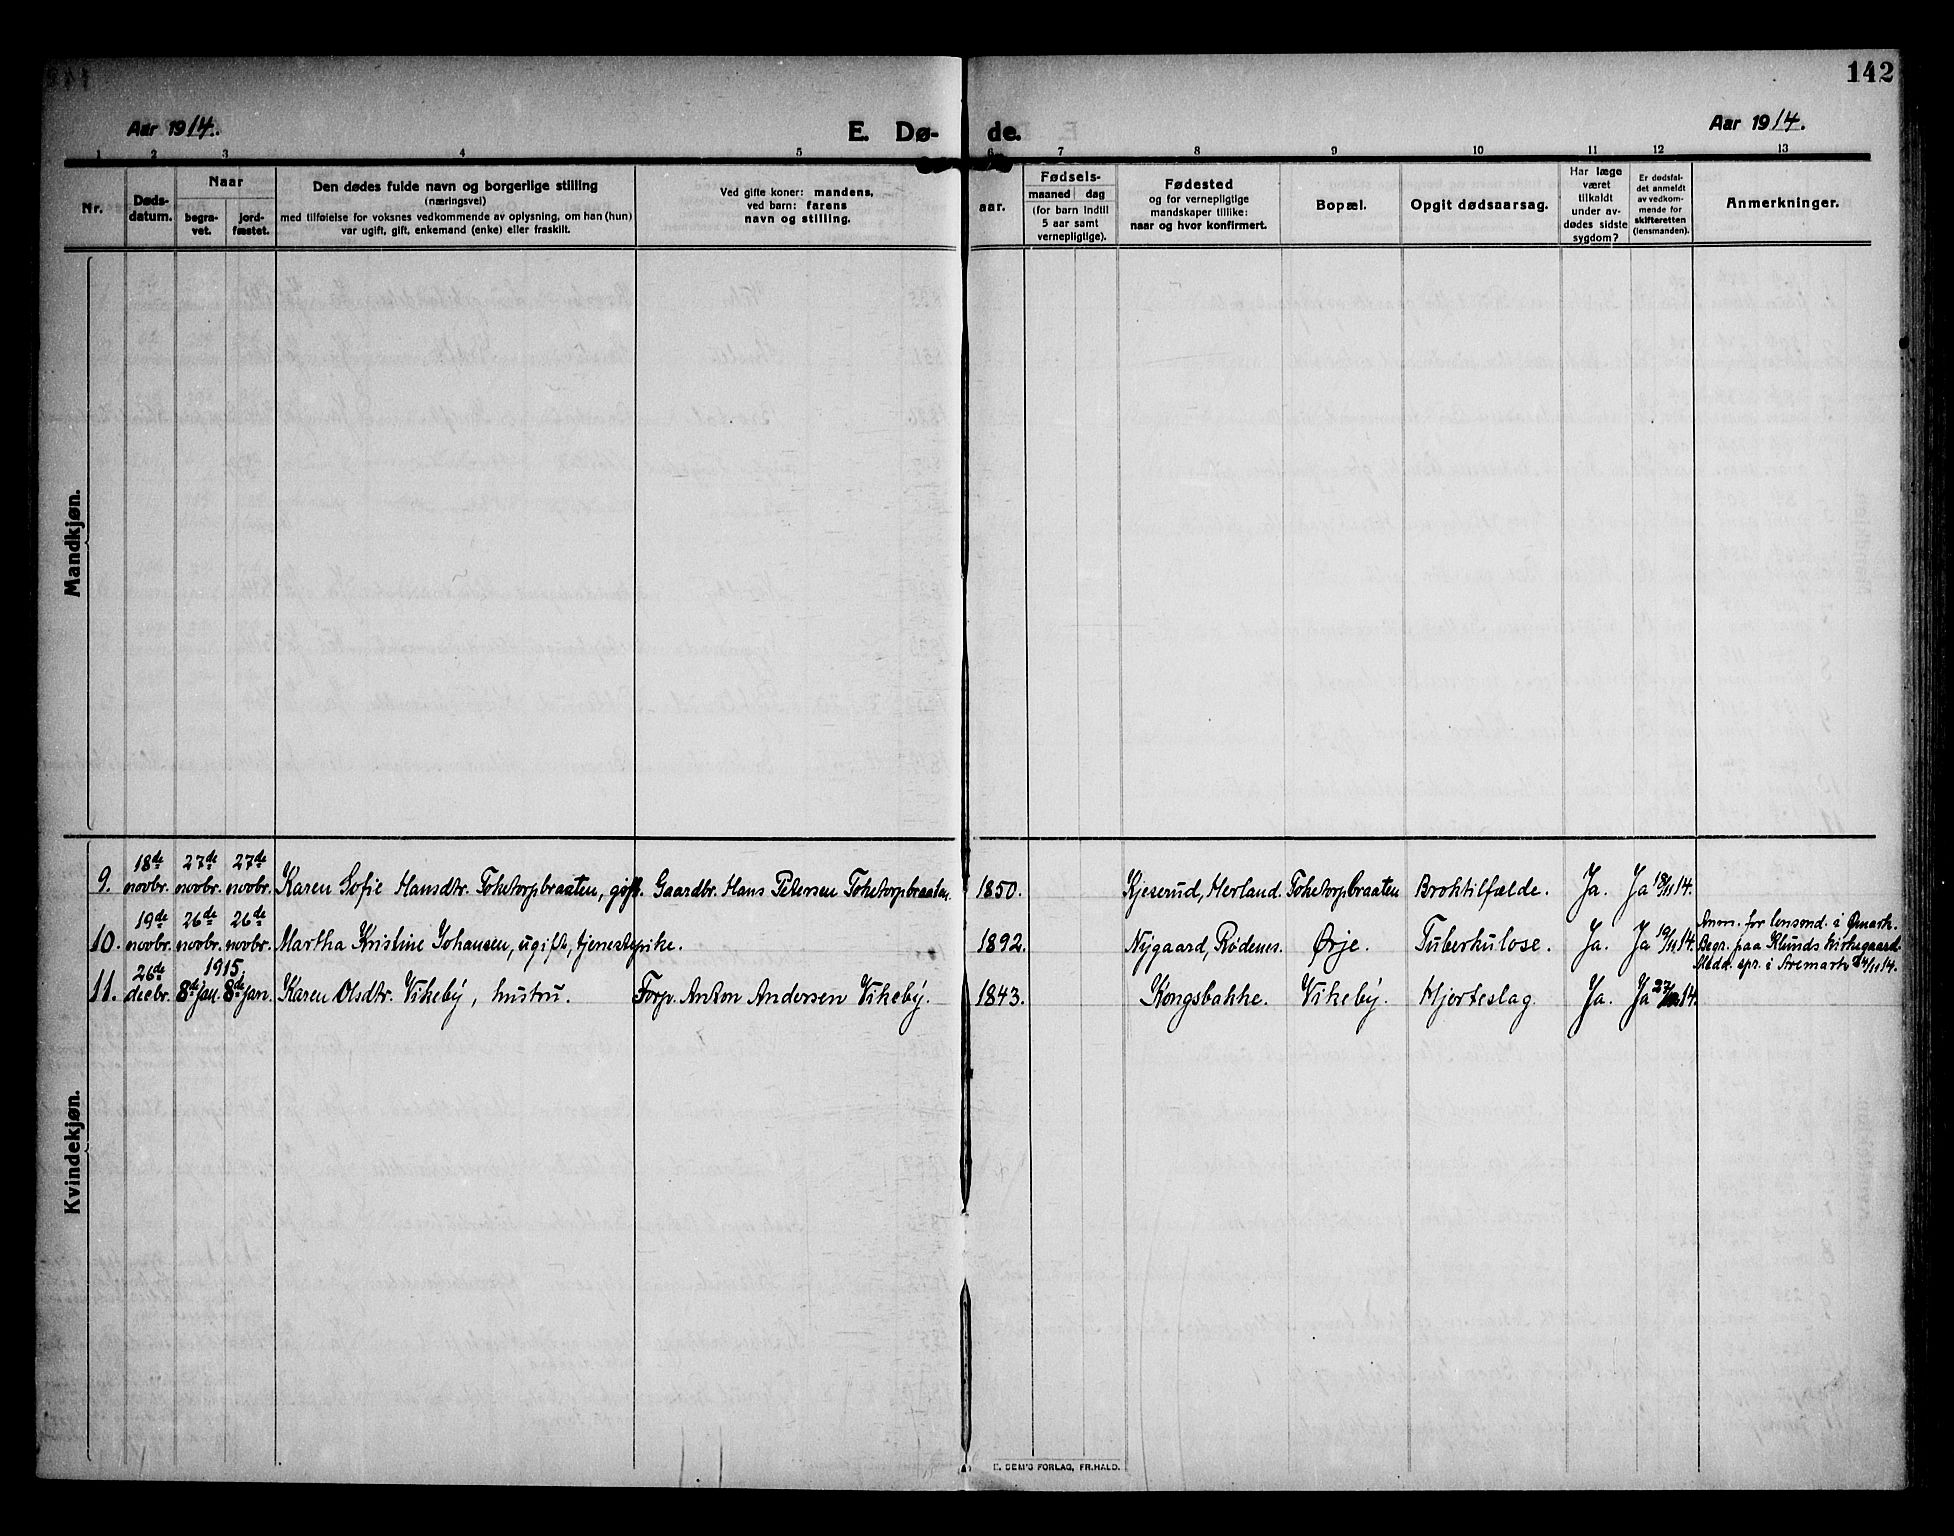 142
Aar 1914.
E. Dø-
de.
Aar 1914.
1 2 3 4 5 6 7 8 9 10 11 12 13
Nr.
Døds-
datum.
Naar
begra-
vet.
jord-
fæstet.
Den dødes fulde navn og borgerlige stilling
(næringsvei)
med tilføielse for voksnes vedkommende av oplysning, om han (hun)
var ugift, gift, enkemand (enke) eller fraskilt.
Ved gifte koner: mandens,
ved barn: farens
navn og stilling.
aar.
Fødsels-
maaned dag
(for barn indtil
5 aar samt
vernepligtige).
Fødested
og for vernepligtige
mandskaper tillike:
naar og hvor konfirmert.
Bopæl.
Opgit dødsaarsag.
Har læge
været
tilkaldt
under av-
dødes sidste
sygdom?
Er dødsfal-
det anmeldt
av vedkom-
mende for
skifteretten
(lensmanden).
Anmerkninger.
Mandkjøn.
Kvindekjøn.
18de 27de 27de
9. novbr. novbr. novbr. Karen Sofie Hansdtr. Toketorpbraaten, gift. Gaardbr. Hans Petersen Toketorpbraaten. 1850. Kjeserud, Herland. Toketorpbraaten Broktilfælde. Ja. Ja 18/11 14.
19de 26de 26de
10. novbr. novbr. novbr. Martha Kristine Johansen, ugift, tjenestepike. 1892. Nygaard, Rødenes. Ørje. Tuberkulose. Ja. Ja 19/11 14.
Anm. for lensmd. i Ømark.
Begr. paa Klunds kirkegaard
Medd. spr. i Aremark 24/11 14.
26de 1915.
11. decbr. 8de jan. 8de jan. Karen Olsdtr. Vikeby, hustru. Forp. Anton Andersen Vikeby. 1843. Kongsbakke. Vikeby. Hjerteslag. Ja. Ja 27/12 14.
E. SEM'S FORLAG, FR.HALD.